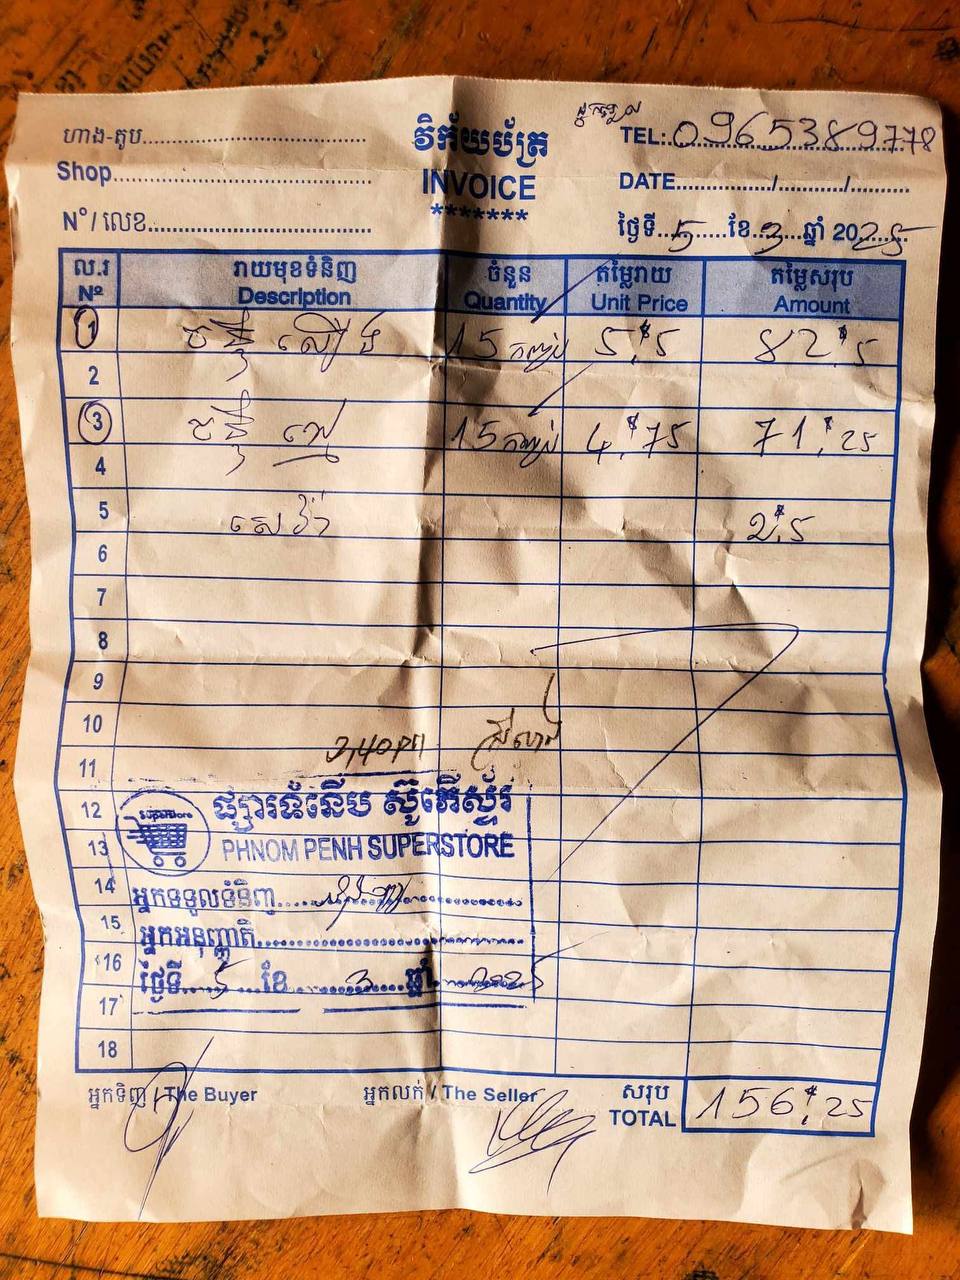 ហាង-តូប
វិក្ក័យប័ត្រ
TEL: 0965389778
Shop
INVOICE
DATE / /
*******
N° / លេខ
ថ្ងៃទី 5 ខែ 3 ឆ្នាំ 2025
ល.រ រាយមុខទំនិញ ចំនួន តម្លៃរាយ តម្លៃសរុប
Nº Description Quantity Unit Price Amount
1 លឿង 15 កញ្ចប់ 5,$5 82,$5
2
3 15 កញ្ចប់ 4,$75 71,$25
4
5 សេវ៉ា 2,$5
6
7
8
9
10
11
12 ផ្សារទំនើប ស៊ូភើស្ទ័រ
superstore
13 PHNOM PENH SUPERSTORE
14 អ្នកទទួលទំនិញ
15 អ្នកអនុញ្ញាតិ
16 ថ្ងៃទី 5 ខែ 3 ឆ្នាំ 2025
17
18
អ្នកទិញ / The Buyer អ្នកលក់ / The Seller សរុប
TOTAL 156,$25